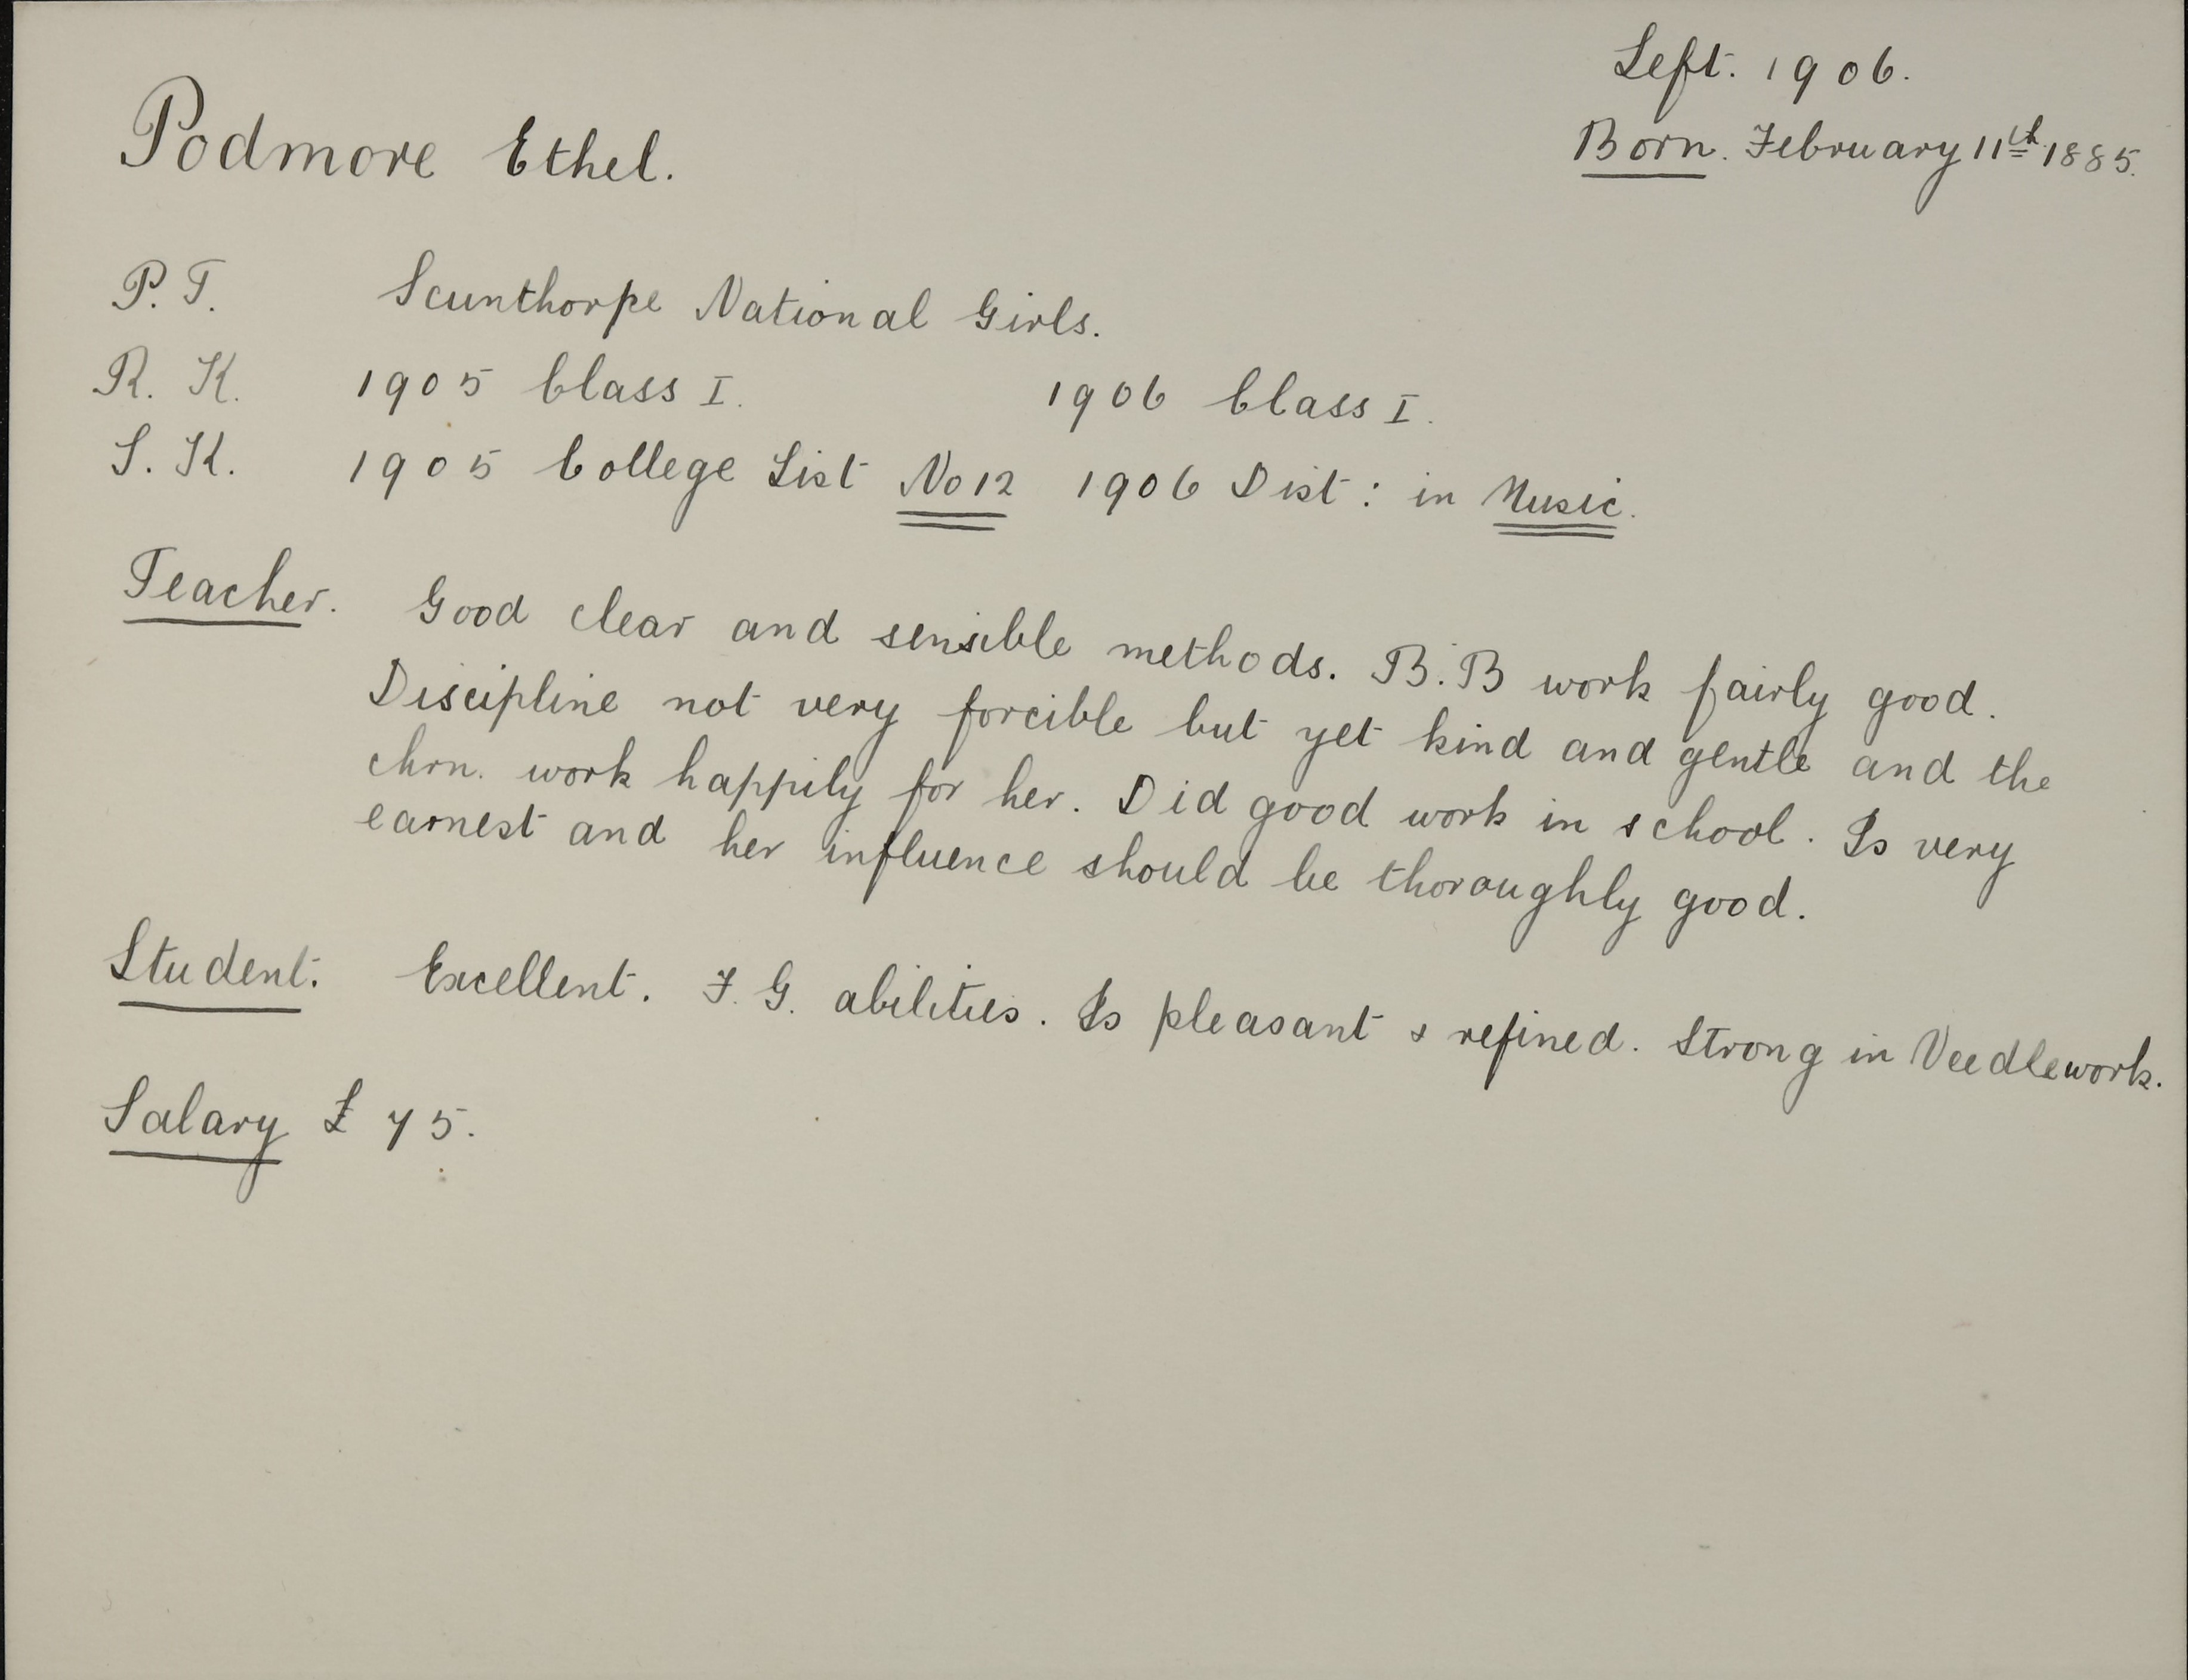 Left. 1906.
Podmore Ethel.
Born. February 11th 1885.
P. T. Scunthorpe National Girls.
R. K. 1905 Class I. 1906 Class I.
S. K. 1905 College List No 12 1906 Dist: in Music.
Teacher. Good clear and sensible methods. B.B work fairly good.
Discipline not very forcible but yet kind and gentle and the
chrn. work happily for her. Did good work in school. Is very
earnest and her influence should be thoroughly good.
Student. Excellent. F. G. abilities. Is pleasant & refined. Strong in Needlework.
Salary £ 75.